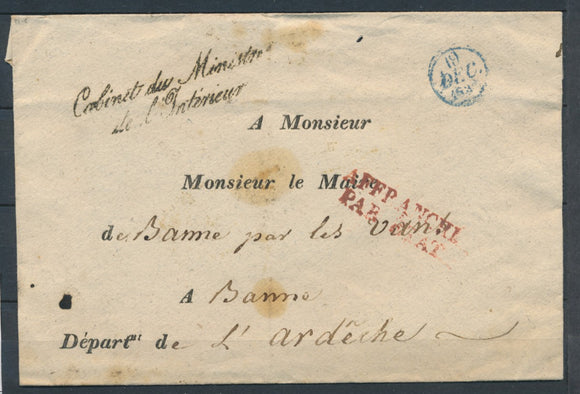 Cabinet du Ministre
de l'Intérieur
19
DEC.
A Monsieur
Monsieur le Maire
AFFRANCHI
PAR ETAT
de Banne par les Vans
A Banne
Départ.nt de L'ardèche